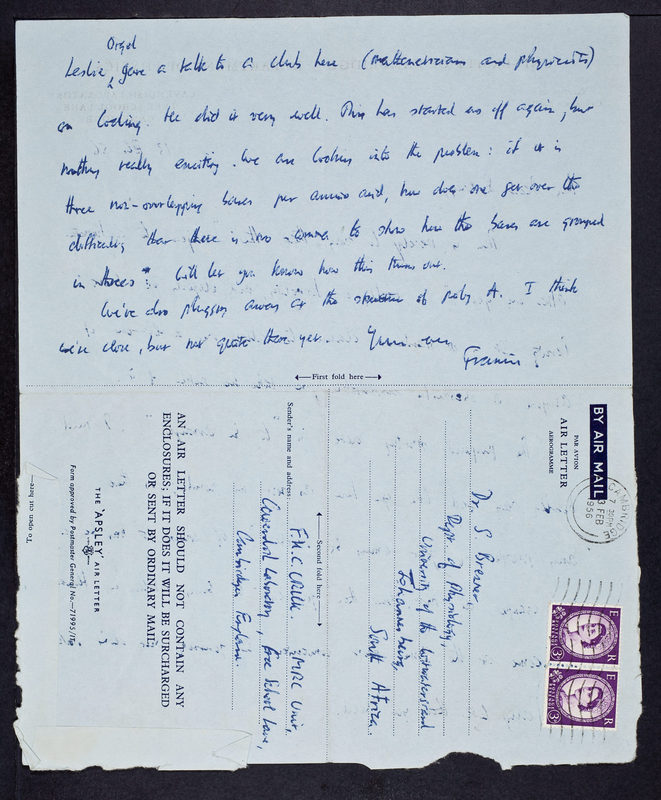 Orgel
Leslie, gave a talk to a club here (mathematicians and physicists)
on Coding. He did it very well. This has started us off again, but
nothing really exciting. We are looking into the problem: if it is
three non-overlapping bases per amino acid, how does one get over the
difficulty that there is no comma to show how the bases are grouped
in threes? Will let you know how this turns out.
We've also plugging away at the structure of poly A. I think
we're close, but not quite there yet. Yours ever
Francis
First fold here
BY AIR MAIL
PAR AVION
AIR LETTER
AEROGRAMME
CAMBRIDGE
FEB
1956
E R
E R
Dr. S Brenner,
Dept of Physiology,
University of the Witwatersrand
Johannesburg,
South Africa.
Second fold here
Sender's name and address:
F.H.C. CRICK. MRC Unit,
Cavendish Laboratory, Free School Lane,
Cambridge England
AN AIR LETTER SHOULD NOT CONTAIN ANY
ENCLOSURES; IF IT DOES IT WILL BE SURCHARGED
OR SENT BY ORDINARY MAIL.
THE 'APSLEY' AIR LETTER
Form approved by Postmaster General No.—71995/
To open cut here